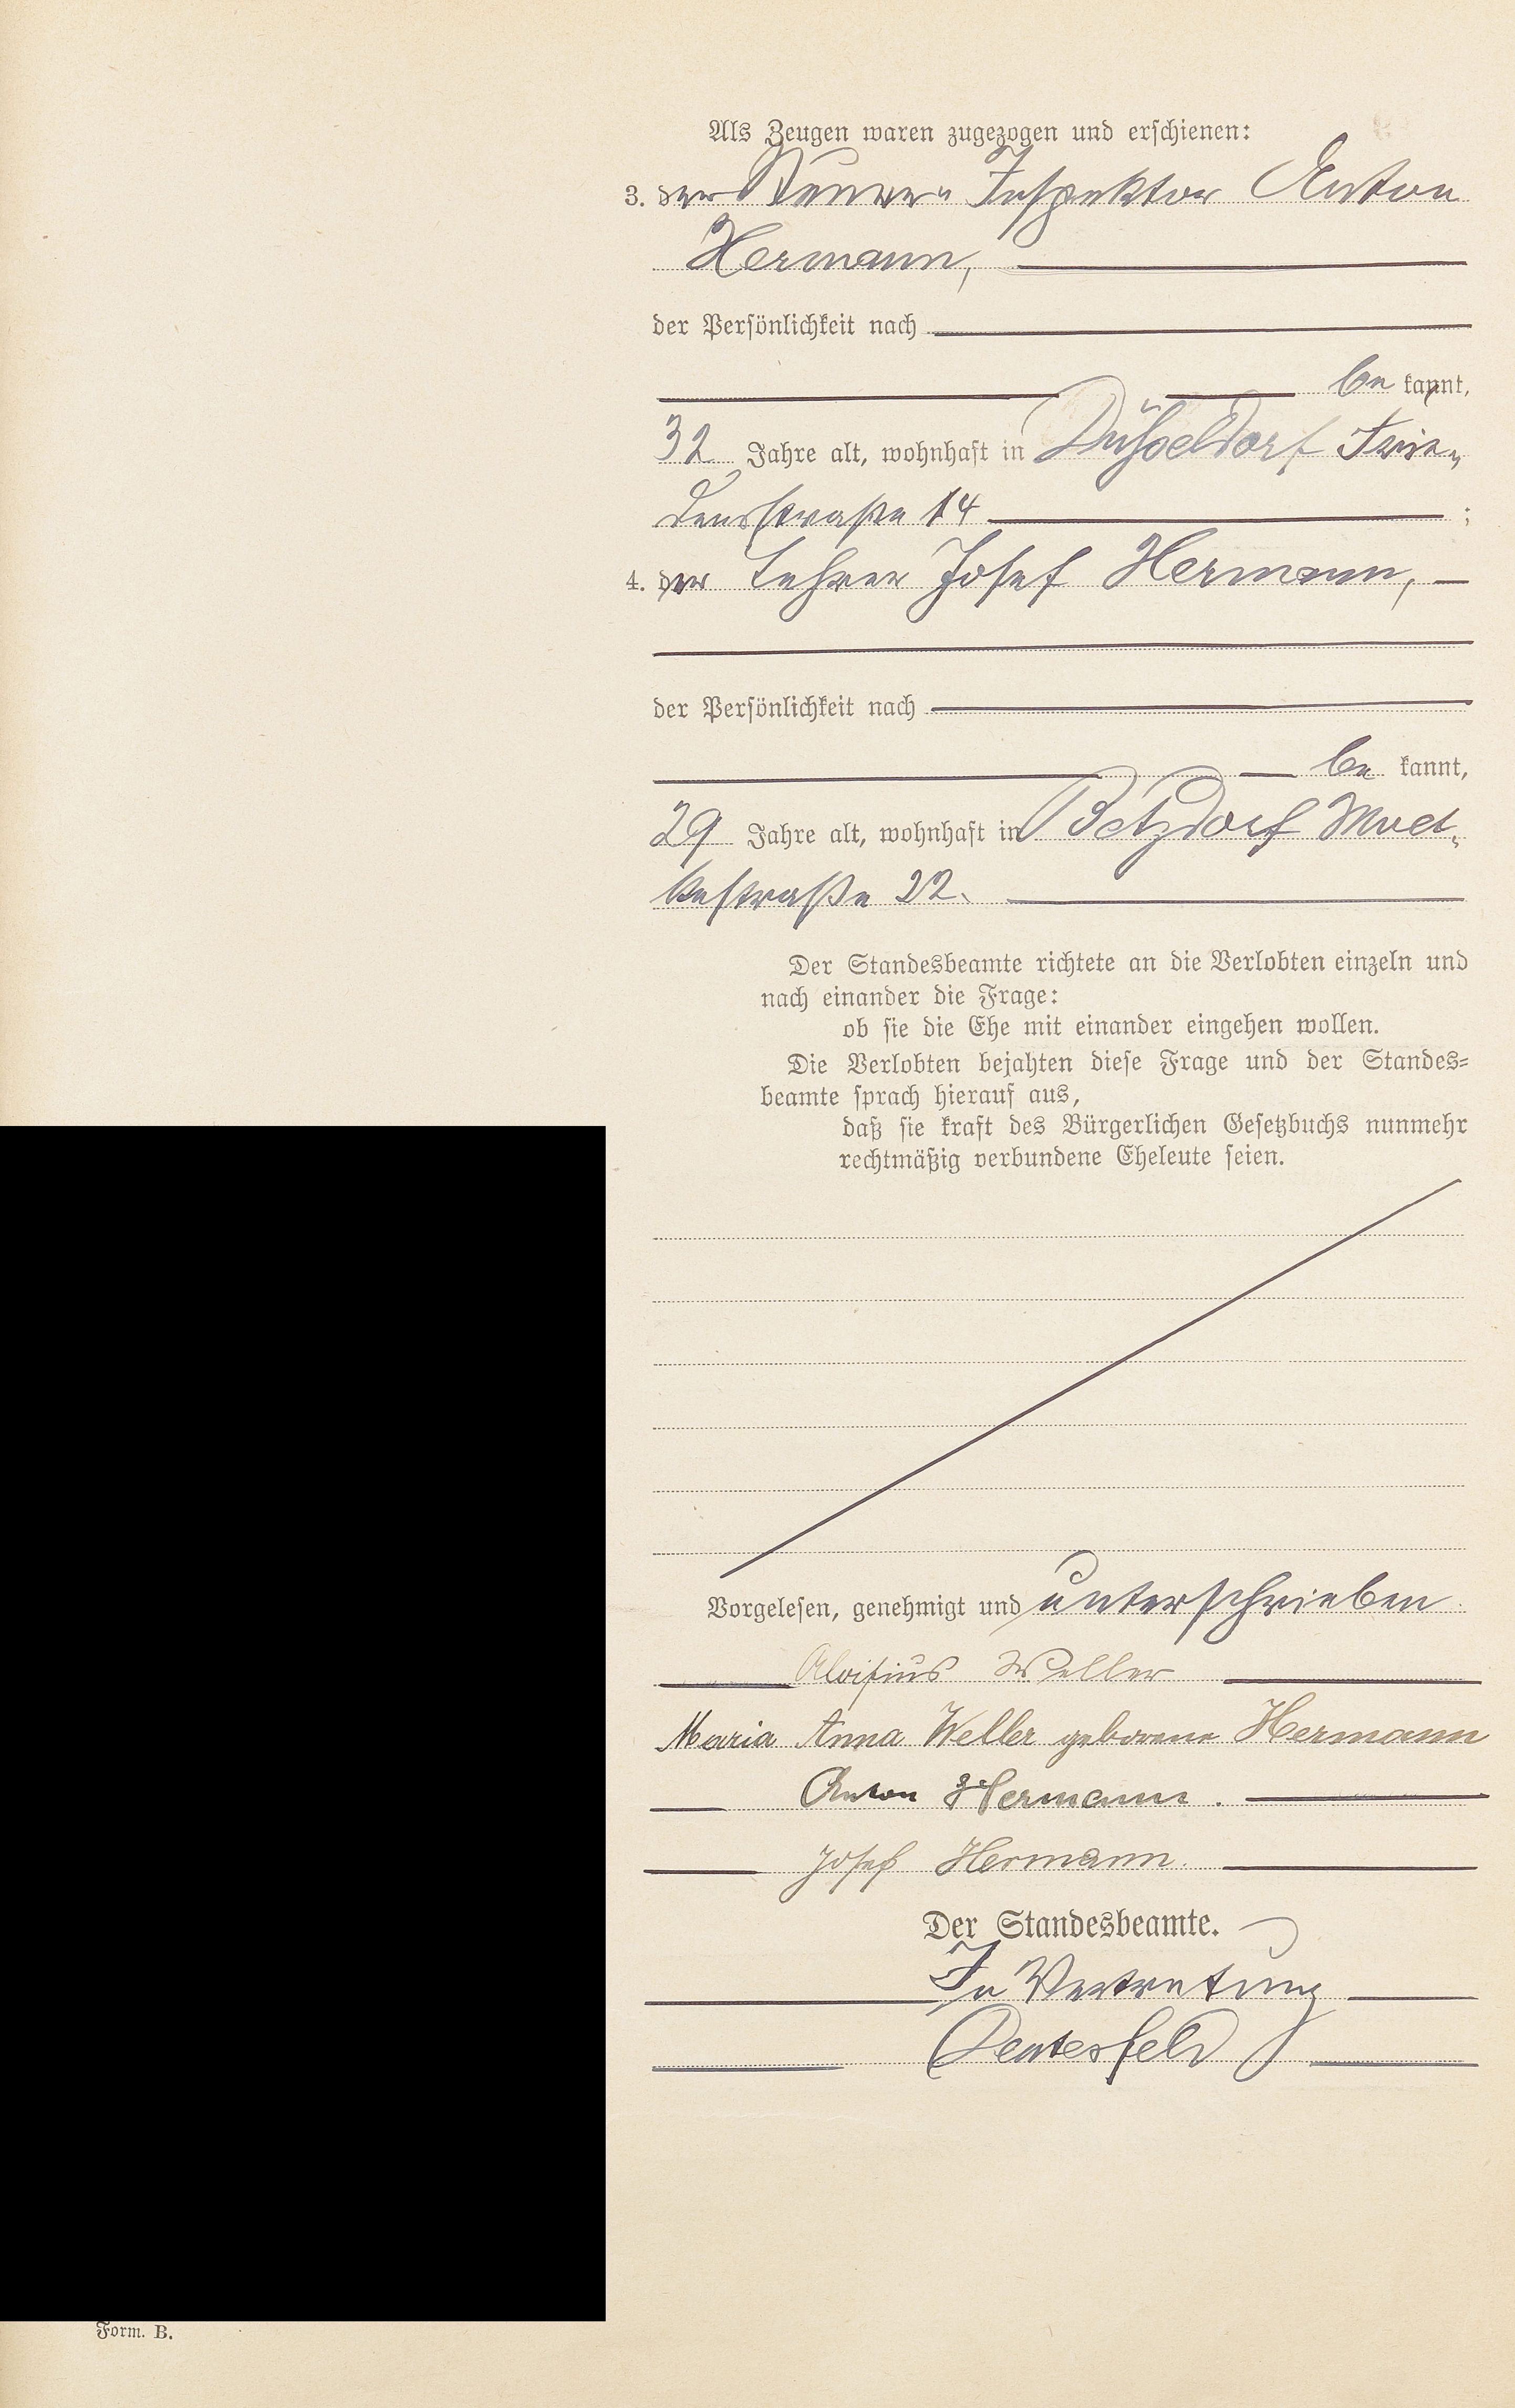 Als Zeugen waren zugezogen und erschienen:
3. der Steuer-Inspektor Anton
Hermann,
der Persönlichkeit nach
be kannt,
32 Jahre alt, wohnhaft in Düsseldorf Frie-
densstraße 14 ;
4. der Lehrer Josef Hermann,
der Persönlichkeit nach
be kannt,
29 Jahre alt, wohnhaft in Betzdorf
straße 22.
Der Standesbeamte richtete an die Verlobten einzeln und
nach einander die Frage:
ob sie die Ehe mit einander eingehen wollen.
Die Verlobten bejahten diese Frage und der Standes-
beamte sprach hierauf aus,
daß sie kraft des Bürgerlichen Gesetzbuchs nunmehr
rechtmäßig verbundene Eheleute seien.
Vorgelesen, genehmigt und unterschrieben
Aloisius Weller
Maria Anna Weller geborene Hermann
Anton Hermann.
Josef Hermann.
Der Standesbeamte.
In Vertretung
Form. B.